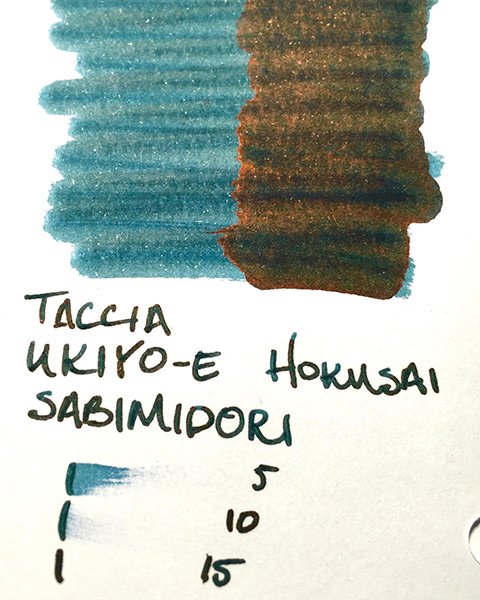 TACCIA
UKIYO-E HOKUSAI
SABIMIDORI
5
10
15